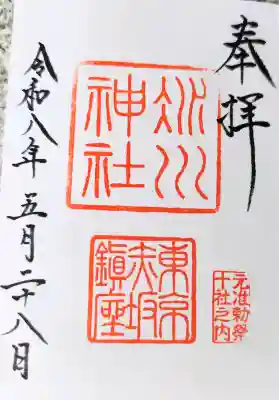 奉拝
氷川神社
東京赤坂鎮座
元准勅祭
十社之内
令和八年五月二十八日